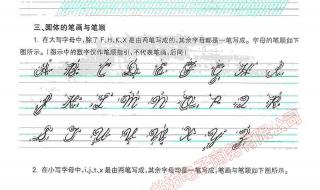 三、圆体的笔画与笔顺
1. 在大写字母中,除了F、H、K、X是由两笔写成的,其余字母都是一笔写成。字母的笔顺如下
图所示。(图示中的数字仅作笔顺指引,不代表笔画,后同)
A B C D E F G H I
J K L M N O P Q R
S T U V W X Y Z
2. 在小写字母中,i、j、t、x是由两笔写成,其余字母均是一笔写成,笔画与笔顺如下图所示。